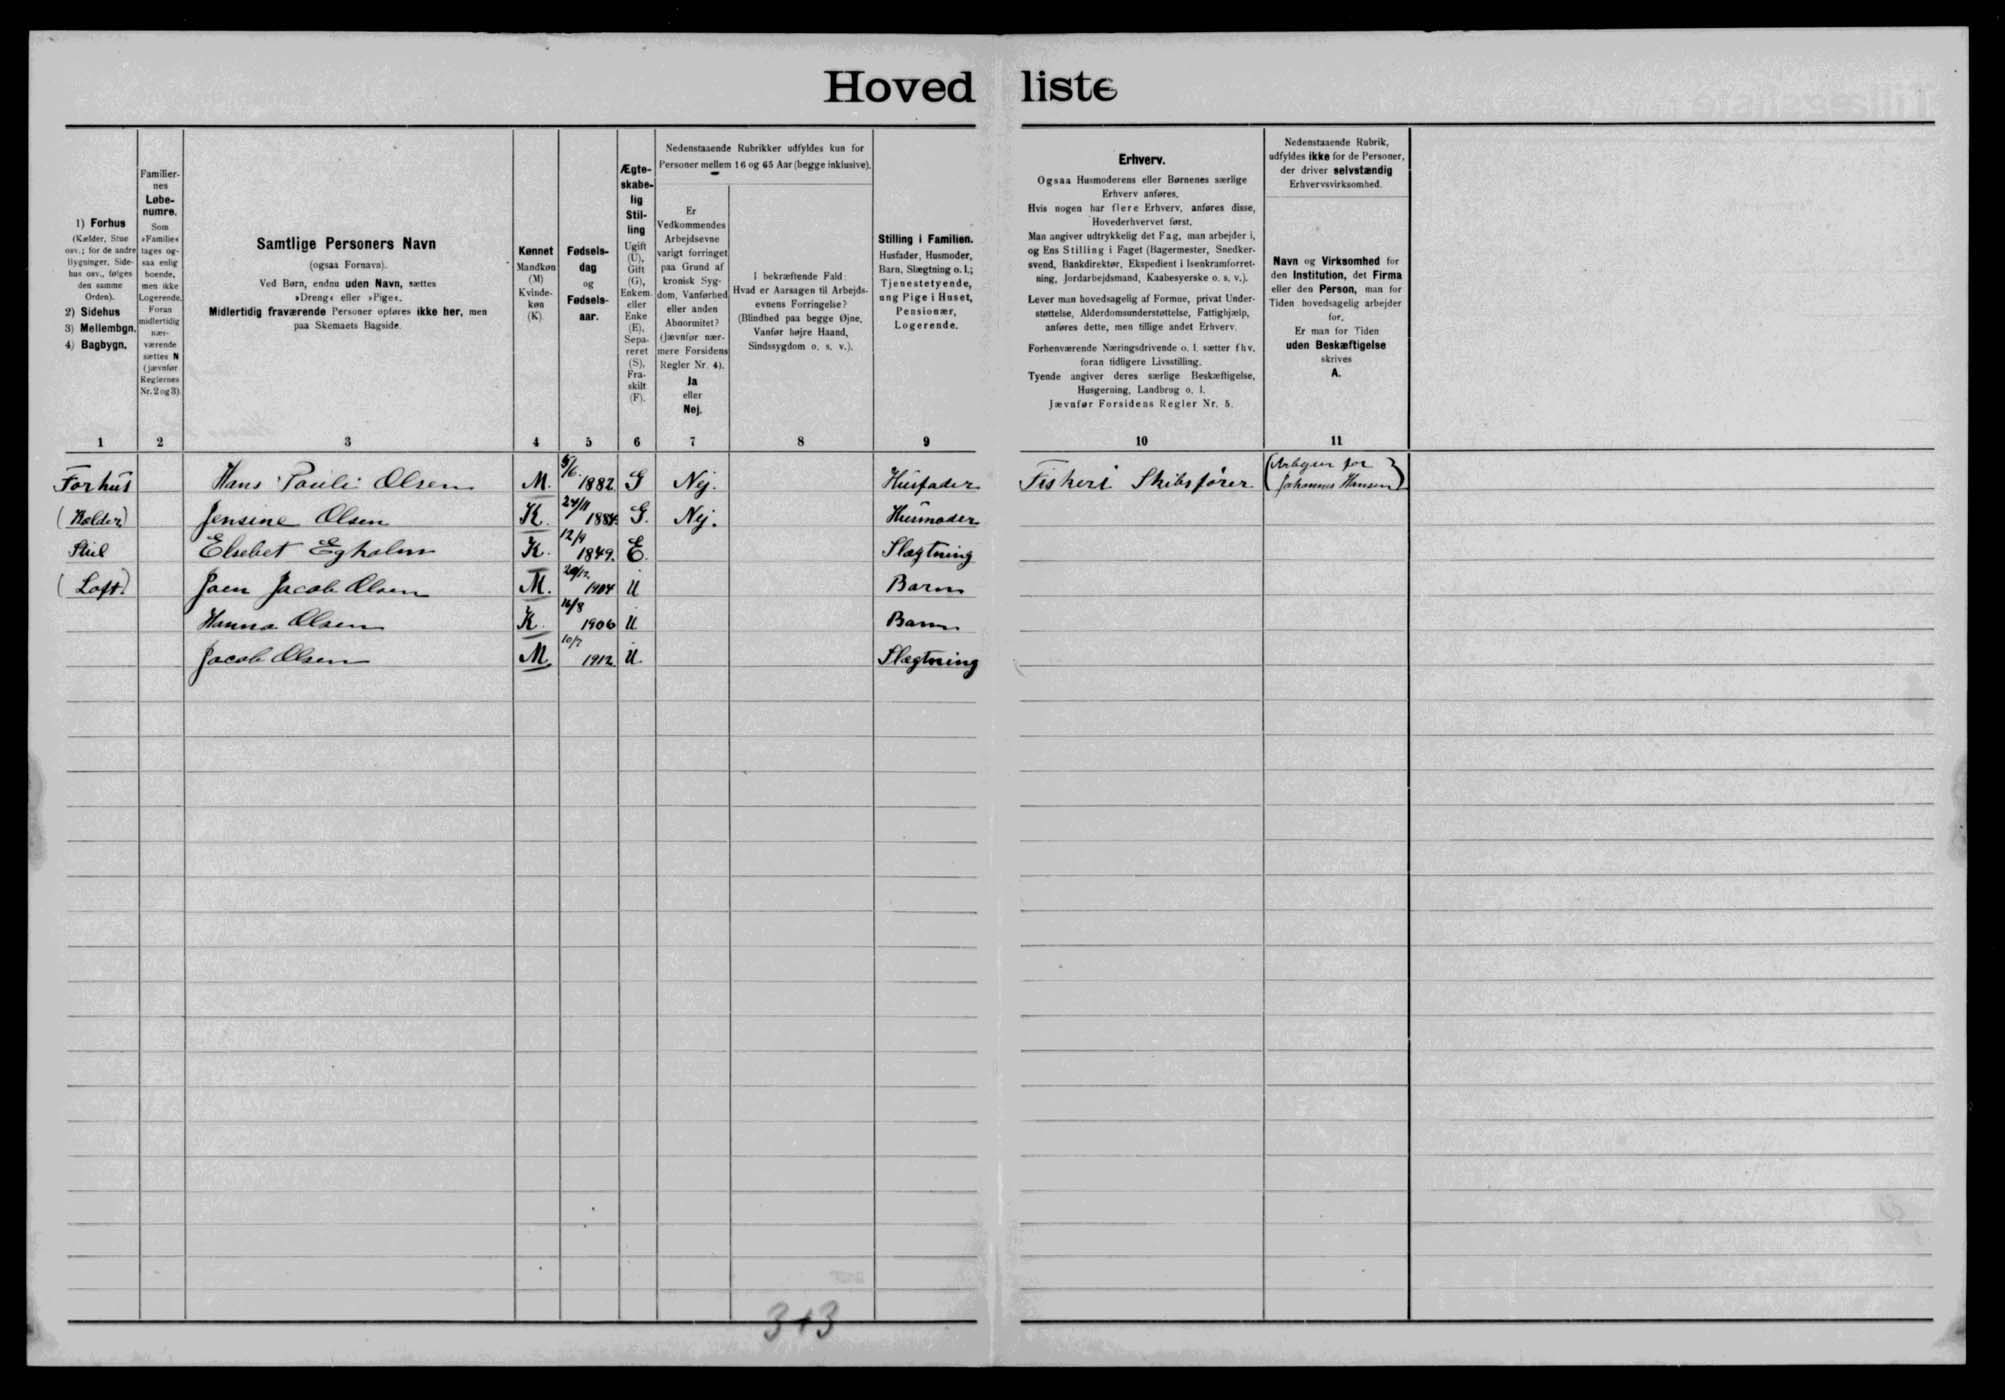 Hoved liste
1) Forhus
(Kælder, Stue
osv.; for de andre
Bygninger, Side-
hus osv., følges
den samme
Orden).
2) Sidehus
3) Mellembgn.
4) Bagbygn.
Familier-
nes
Løbe-
numre.
Som
»Familie«
tages og-
saa enlig
boende,
men ikke
Logerende.
Foran
midlertidig
nær-
værende
sættes N
(jævnfør
Reglernes
Nr. 2 og 3)
Samtlige Personers Navn
(ogsaa Fornavn).
Ved Børn, endnu uden Navn, sættes
»Dreng« eller »Pige«.
Midlertidig fraværende Personer opføres ikke her, men
paa Skemaets Bagside.
Kønnet
Mandkøn
(M)
Kvinde-
køn
(K).
Fødsels-
dag
og
Fødsels-
aar.
Ægte-
skabe-
lig
Stil-
ling
Ugift
(U),
Gift
(G),
Enkem.
eller
Enke
(E),
Sepa-
reret
(S),
Fra-
skilt
(F).
Nedenstaaende Rubrikker udfyldes kun for
Personer mellem 16 og 65 Aar (begge inklusive).
Er
Vedkommendes
Arbejdsevne
varigt forringet
paa Grund af
kronisk Syg-
dom, Vanførhed
eller anden
Abnormitet?
(Jævnfør nær-
mere Forsidens
Regler Nr. 4).
Ja
eller
Nej.
I bekræftende Fald:
Hvad er Aarsagen til Arbejds-
evnens Forringelse?
(Blindhed paa begge Øjne,
Vanfør højre Haand,
Sindssygdom o. s. v.).
Stilling i Familien.
Husfader, Husmoder,
Barn, Slægtning o. l.;
Tjenestetyende,
ung Pige i Huset,
Pensionær,
Logerende.
Erhverv.
Ogsaa Husmoderens eller Børnenes særlige
Erhverv anføres.
Hvis nogen har flere Erhverv, anføres disse,
Hovederhvervet først.
Man angiver udtrykkelig det Fag, man arbejder i,
og Ens Stilling i Faget (Bagermester, Snedker-
svend, Bankdirektør, Ekspedient i Isenkramforret-
ning, Jordarbejdsmand, Kaabesyerske o. s. v.).
Lever man hovedsagelig af Formue, privat Under-
støttelse, Alderdomsunderstøttelse, Fattighjælp,
anføres dette, men tillige andet Erhverv.
Forhenværende Næringsdrivende o. l. sætter fhv.
foran tidligere Livsstilling.
Tyende angiver deres særlige Beskæftigelse,
Husgerning, Landbrug o. l.
Jævnfør Forsidens Regler Nr. 5.
Nedenstaaende Rubrik,
udfyldes ikke for de Personer,
der driver selvstændig
Erhvervsvirksomhed.
Navn og Virksomhed for
den Institution, det Firma
eller den Person, man for
Tiden hovedsagelig arbejder
for.
Er man for Tiden
uden Beskæftigelse
skrives
A.
1 2 3 4 5 6 7 8 9 10 11
Forhus Hans Pauli Olsen M. 5/6. 1882 G Nej. Husfader Fiskeri Skibsfører (Arbejder for Johannes Hansen)
(Kælder) Jensine Olsen K. 24/11 1884 G. Nej. Husmoder
Stue Elsebet Egholm K. 12/9 1849. E. Slægtning
(Loft) Joen Jacob Olsen M. 20/12 1904 U Barn
Hanna Olsen K. 16/8 1906 U Barn
Jacob Olsen M 10/7 1912 U. Slægtning
3+3